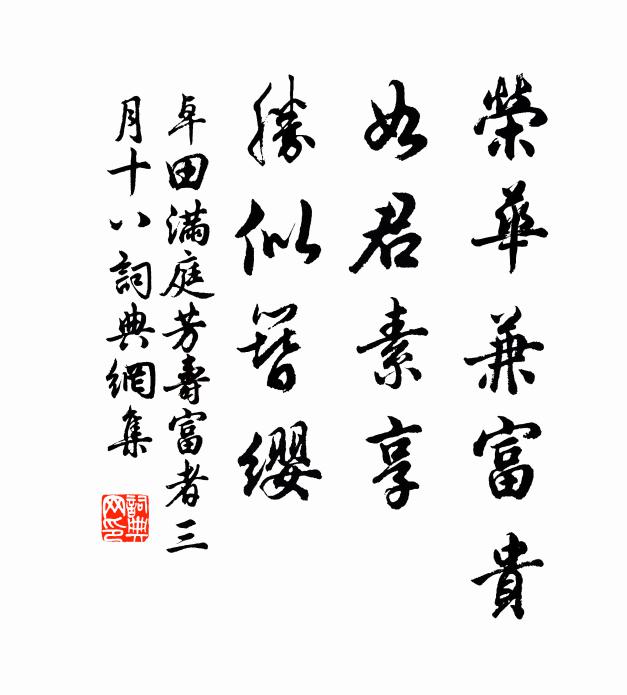 榮華兼富貴
如君素享
勝似簪纓
卓田滿庭芳壽富者三
月十八詞典網集
詞典
网印